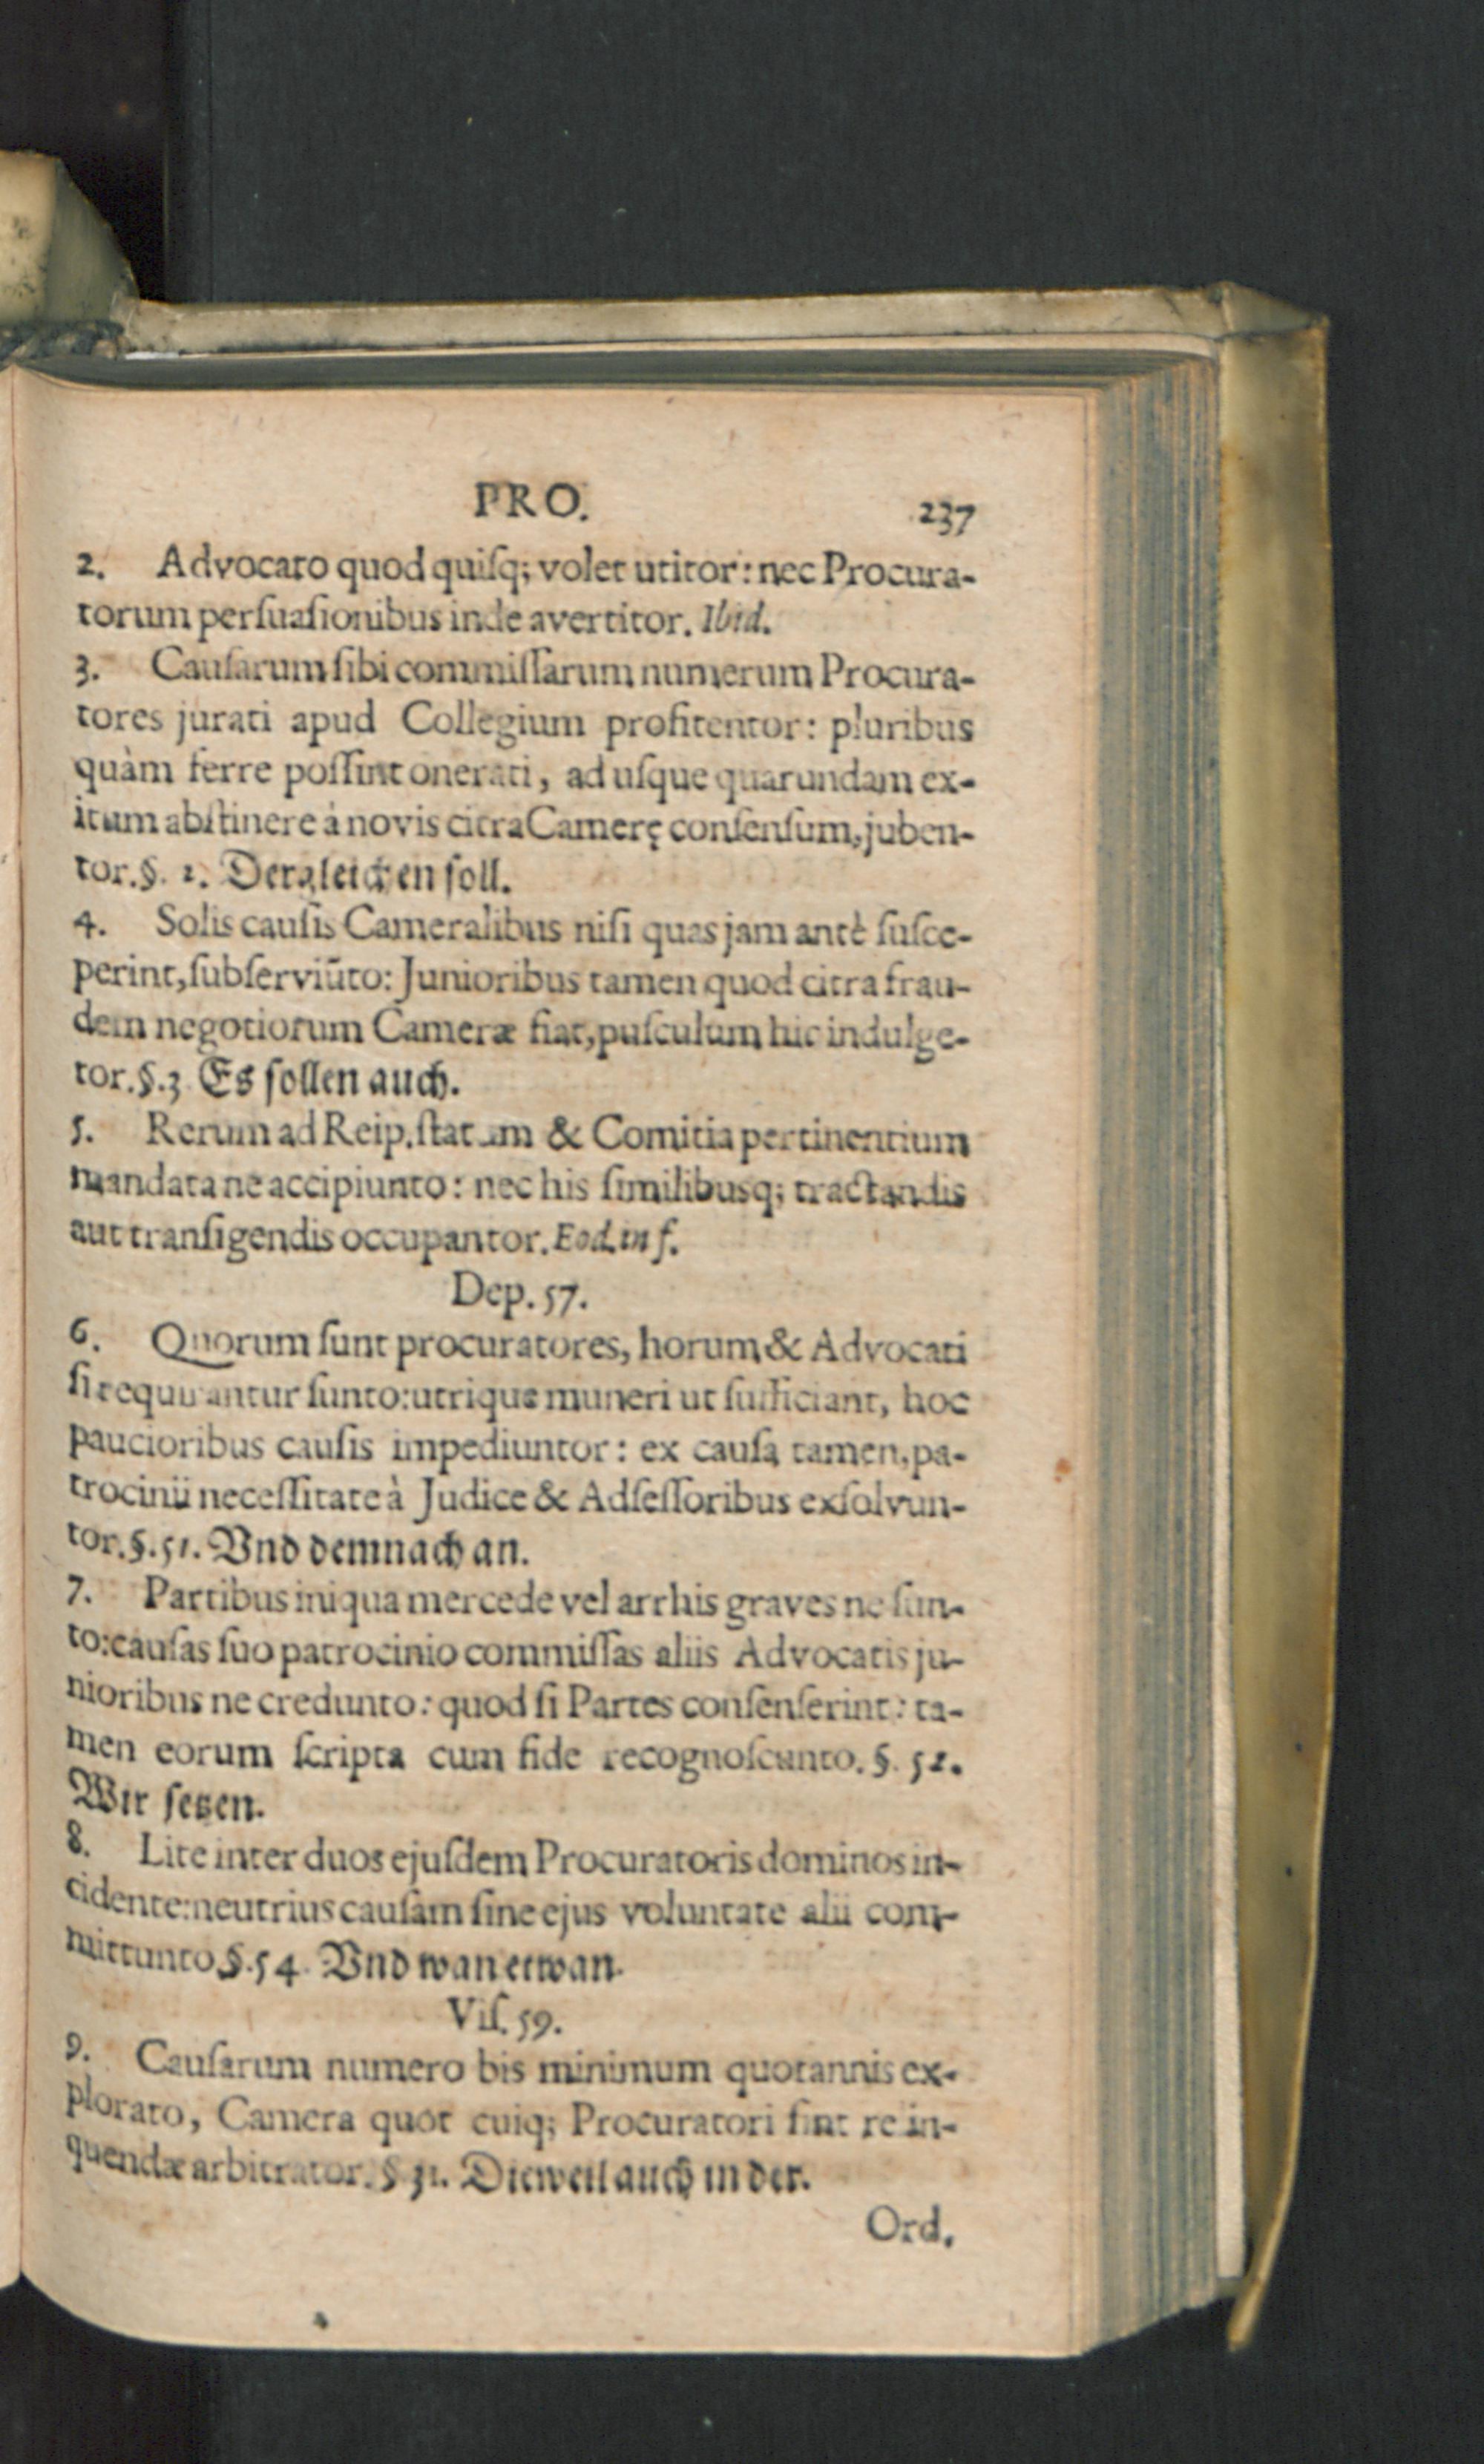 PRO. 237
2. Advocato quod quiſq; volet utitor: nec Procura-
torum perſuaſionibus inde avertitor. Ibid.
3. Cauſarum ſibi commiſſarum numerum Procura-
tores jurati apud Collegium profitentor: pluribus
quàm ferre poſſint onerati, ad uſque quarundam ex-
itum abſtinere à novis citra Camerę conſenſum, juben-
tor. §. 2. Dergleichen ſoll.
4. Solis cauſis Cameralibus niſi quas jam antè ſuſce-
perint, ſubſerviūto: Junioribus tamen quod citra frau-
dem negotiorum Cameræ fiat, puſculum hic indulge-
tor. §. 3. Es ſollen auch.
5. Rerum ad Reip. ſtatum & Comitia pertinentium
mandata ne accipiunto: nec his ſimilibusq; tractandis
aut tranſigendis occupantor. Eod. in f.
Dep. 57.
6. Quorum ſunt procuratores, horum & Advocati
ſi requirantur ſunto: utrique muneri ut ſufficiant, hoc
paucioribus cauſis impediuntor: ex cauſa tamen, pa-
trocinii neceſſitate à Judice & Adſeſſoribus exſolvun-
tor. §. 51. Vnd demnach an.
7. Partibus iniqua mercede vel arrhis graves ne ſun-
to: cauſas ſuo patrocinio commiſſas aliis Advocatis ju-
nioribus ne credunto: quod ſi Partes conſenſerint: ta-
men eorum ſcripta cum fide recognoſcunto. §. 52.
Wir ſetzen.
8. Lite inter duos ejuſdem Procuratoris dominos in-
cidente: neutrius cauſam ſine ejus voluntate alii com-
mittunto. §. 54. Vnd wan etwan.
Viſ. 59.
9. Cauſarum numero bis minimum quotannis ex-
plorato, Camera quot cuiq; Procuratori ſint relin-
quendæ arbitrator. § 31. Dieweil auch in der.
Ord.